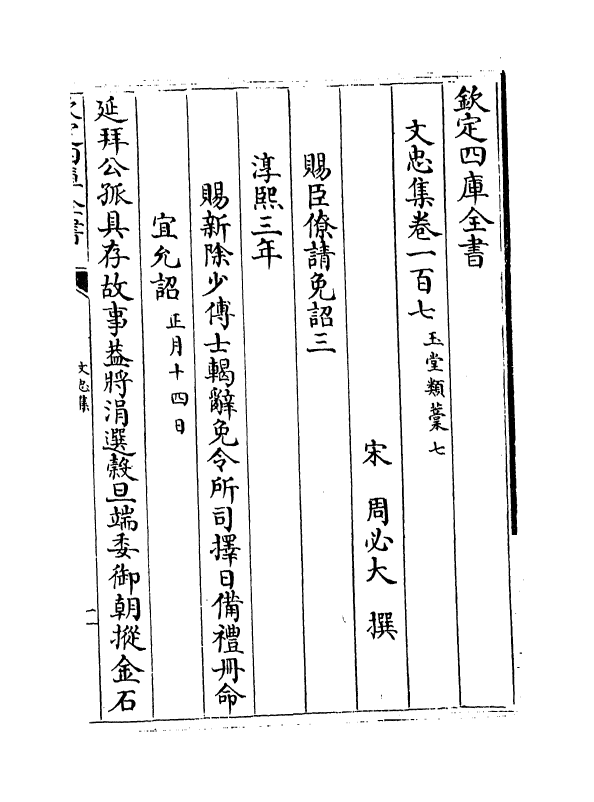 欽定四庫全書
文忠集卷一百七 玉堂類藁七
宋 周必大 撰
賜臣僚請免詔三
淳熙三年
賜新除少傅士輵辭免令所司擇日備禮冊命
宜允詔 正月十四日
延拜公孤具存故事葢將涓選穀旦端委御朝摐金石
文忠集